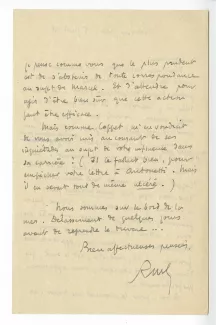 je pense comme vous que le plus prudent
est de s'abstenir de toute correspondance
au sujet de Et d'attendre pour
agir d'être bien sûr que cette action
peut être efficace.
Mais comme m'en voudrait
de vous avoir mis au courant de ses
inquiétudes au sujet de votre influence dans
sa carrière ! (Il le fallait bien, pour
empêcher votre lettre à Mais
il en serait tout de même )
Nous sommes sur le bord de la
mer. Délassement de quelques jours
avant de reprendre le travail ...
Bien affectueuses pensées,